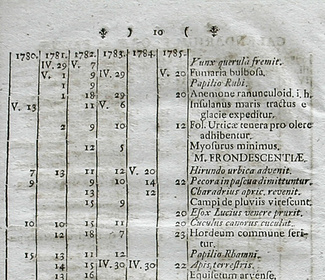 ) 10 (
1780. 1781. 1782. 1783. 1784. 1785.
IV. 29 7 Vunx querula fremit.
V. 1 9 IV. 29 V. 20 Fumaria bulbosa.
1 9 Papilio Rubi.
1 18 29 20 Anemone ranunculoid. i. h.
V. 13 11 V. 6 Insulanus maris tractus e
glacie expeditur.
2 9 10 12 Fol. Urticæ tenera pro olere
adhibentur.
5 12 12 Myosurus minimus.
M. FRONDESCENTIÆ.
7 13 11 12 V. 20 Hirundo urbica advenit.
9 10 14 22 Pecora in pascua dimittuntur.
9 13 12 Charadrius apric. revenit.
9 15 Campi de pluviis virescunt.
20 Esox Lucius venere prurit.
10 10 15 11 20 Cuculus canorus cuculat.
12 18 7 23 Hordeum commune seri-
tur.
15 13 Papilio Rhamni.
14 15 IV. 30 IV. 30 22 Apis terrestris.
13 16 Equisetum arvense,